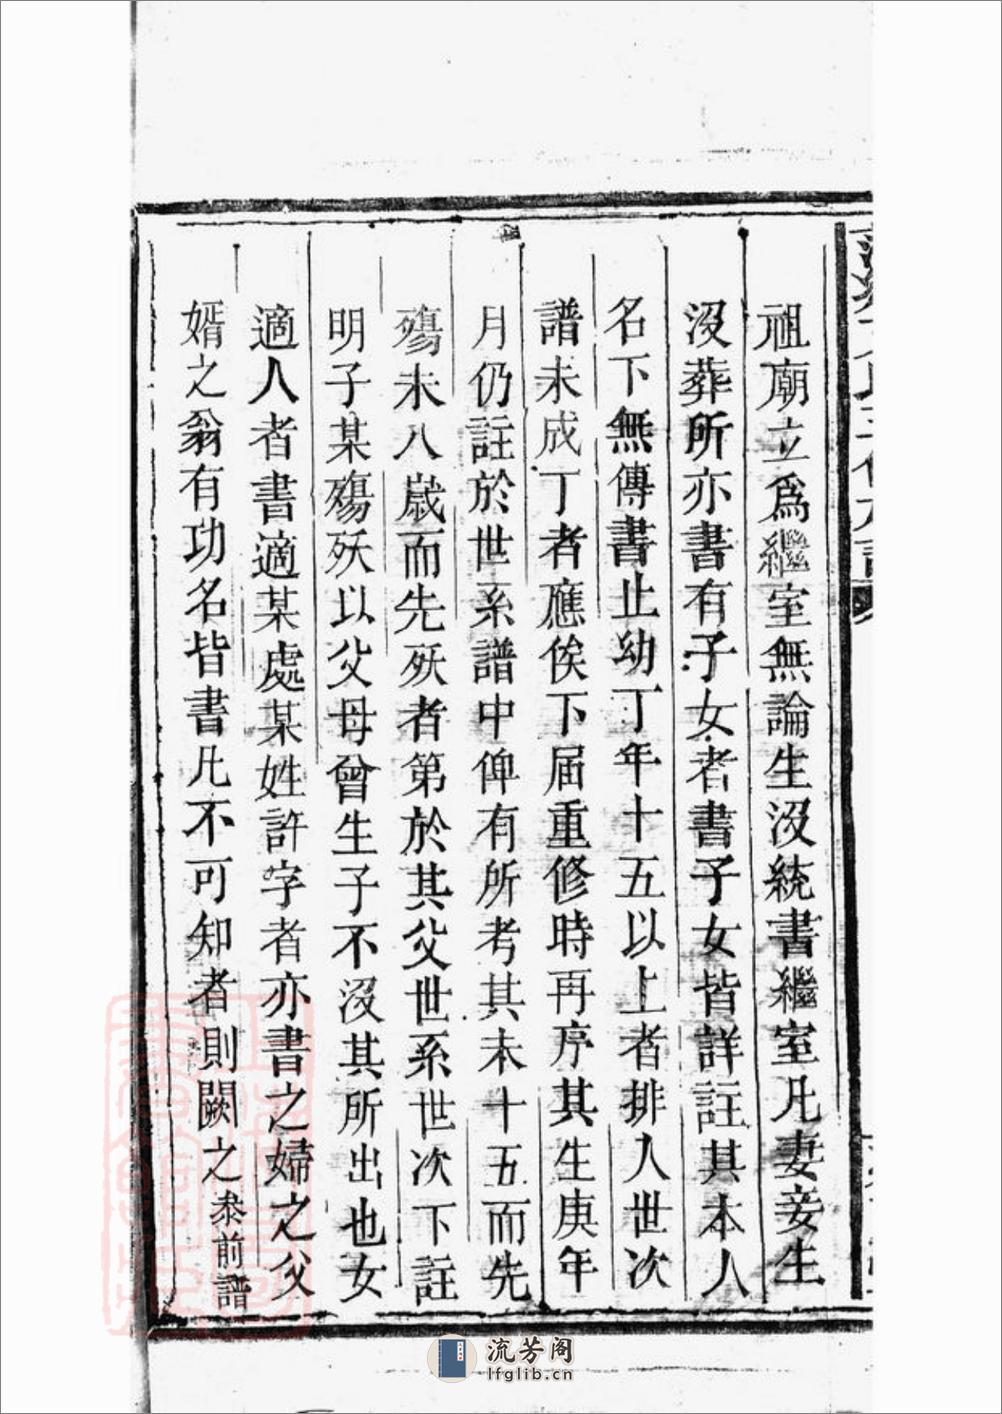 祖廟立爲繼室無論生沒統書繼室凡妻妾生
沒葬所亦書有子女者書子女皆詳註其本人
名下無傳書止幼丁年十五以上者排入世次
譜未成丁者應俟下届重修時再序其生庚年
月仍註於世系譜中俾有所考其未十五而先
殤未八歲而先殀者第於其父世系世次下註
明子某殤殀以父母曾生子不沒其所出也女
適人者書適某處某姓許字者亦書之婦之父
婿之翁有功名皆書凡不可知者則闕之
叅前譜
流芳阁
lfglib.cn